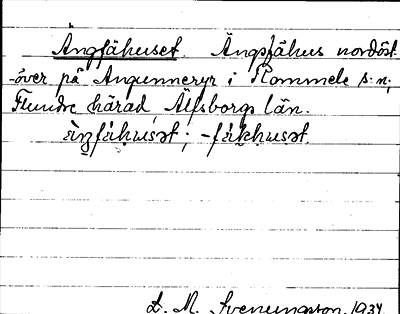 Ängfähuset. Ängsfähus nordöst
-över på Angunneryr i Hommele s:n,
Flundre härad, Älfsborgs län.
ä̀ŋfáhusət; -fákhusət.
D. M. Svenungsson. 1934